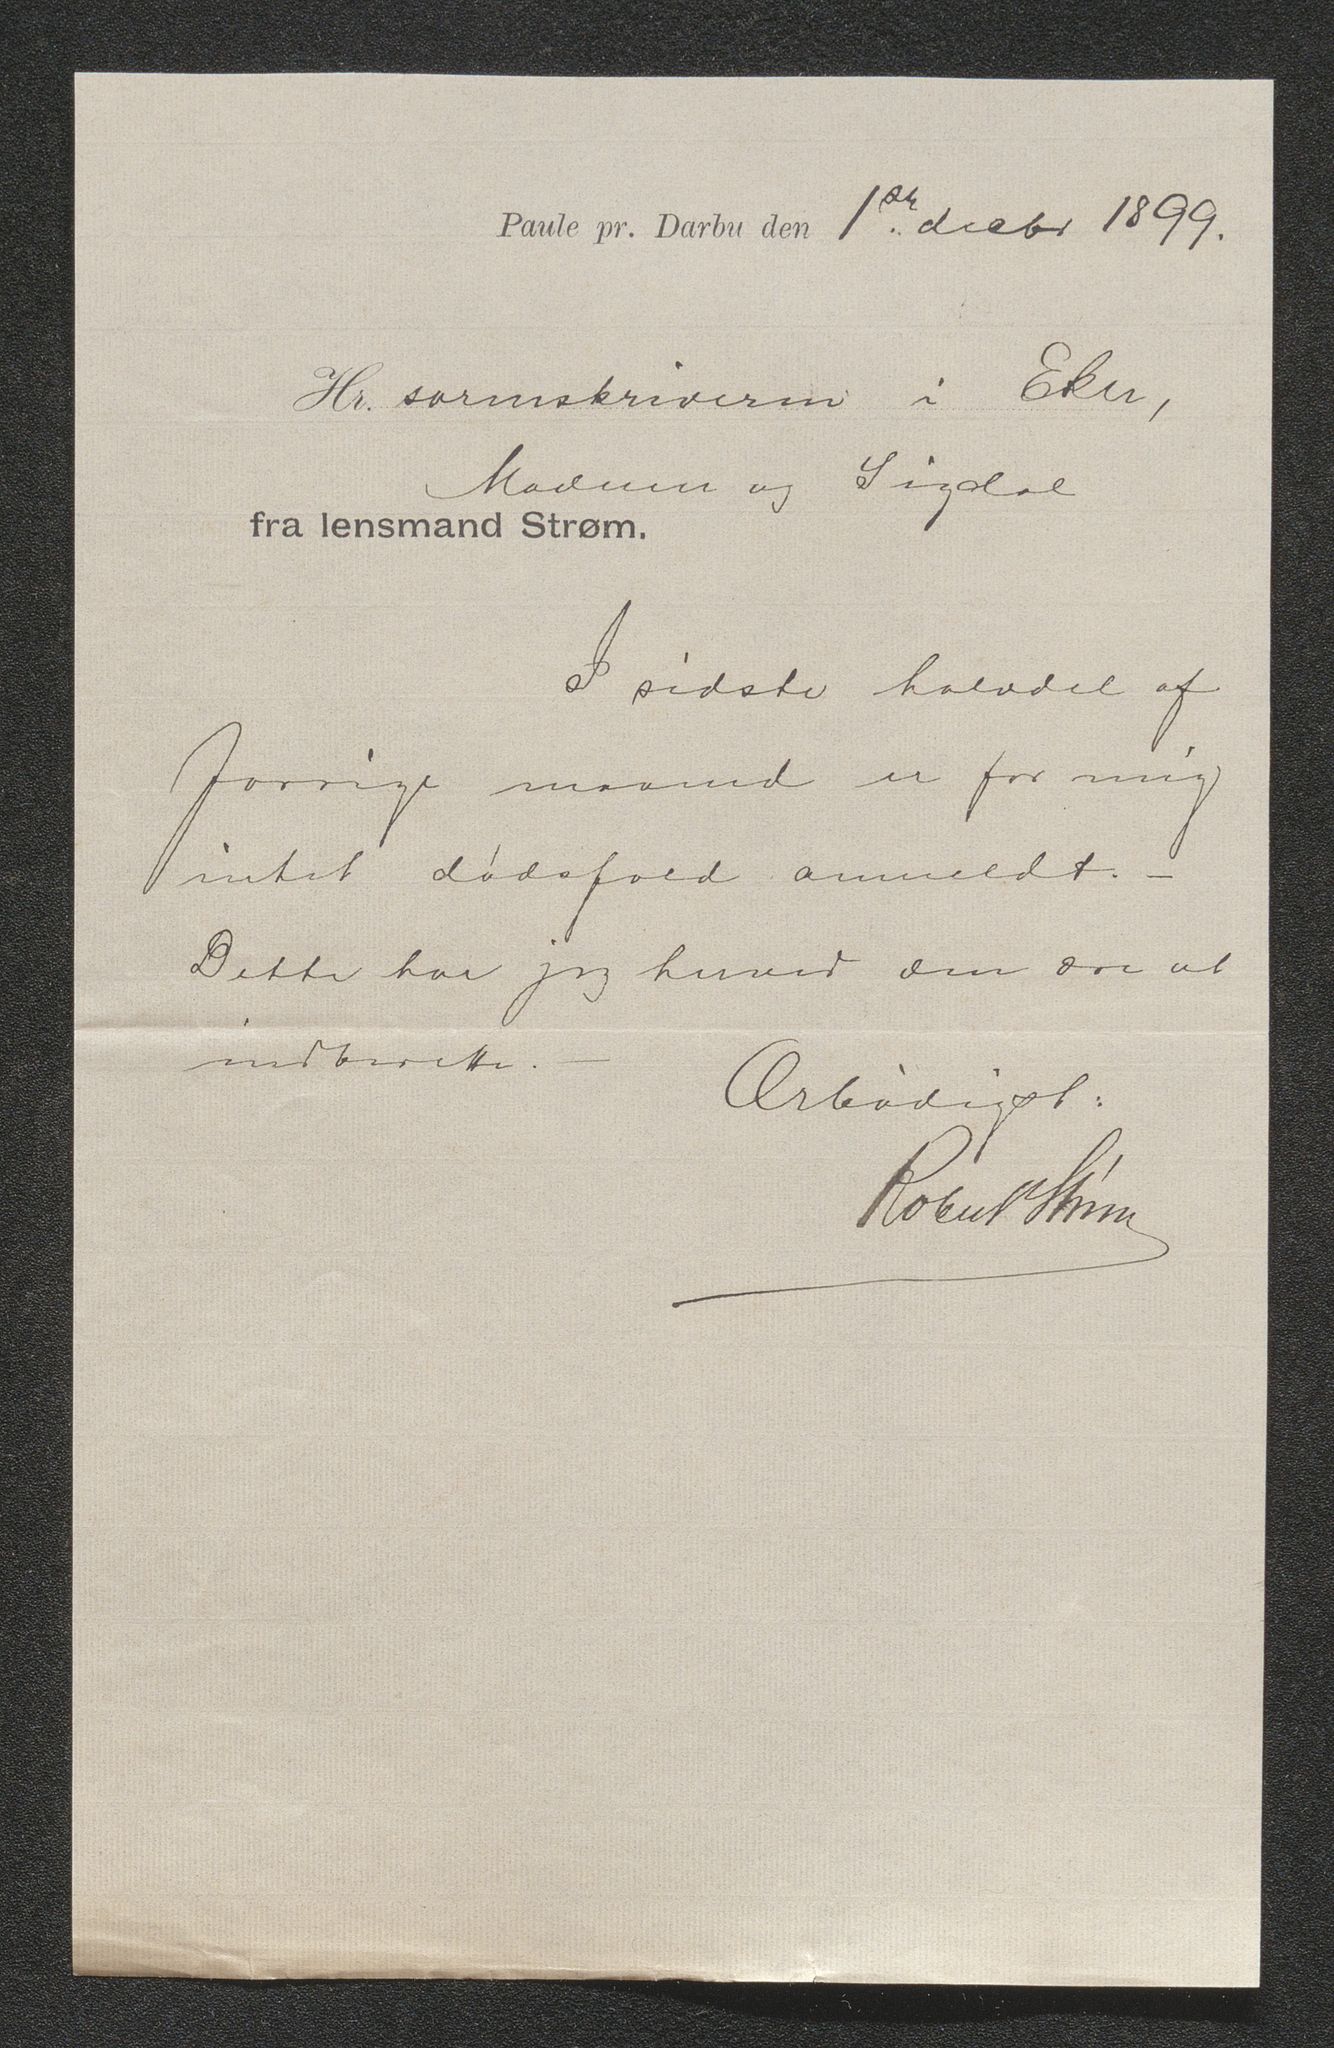 Paule pr. Darbu den 1ste decbr 1899.
Hr. sorenskriveren i Eker,
Modum og Sigdal
fra lensmand Strøm.
I sidste halvdel af
forrige maaned er for mig
intet dødsfald anmeldt. –
Dette har jeg herved den ære at
indberette. –
Ærbødigst:
Robert Strøm